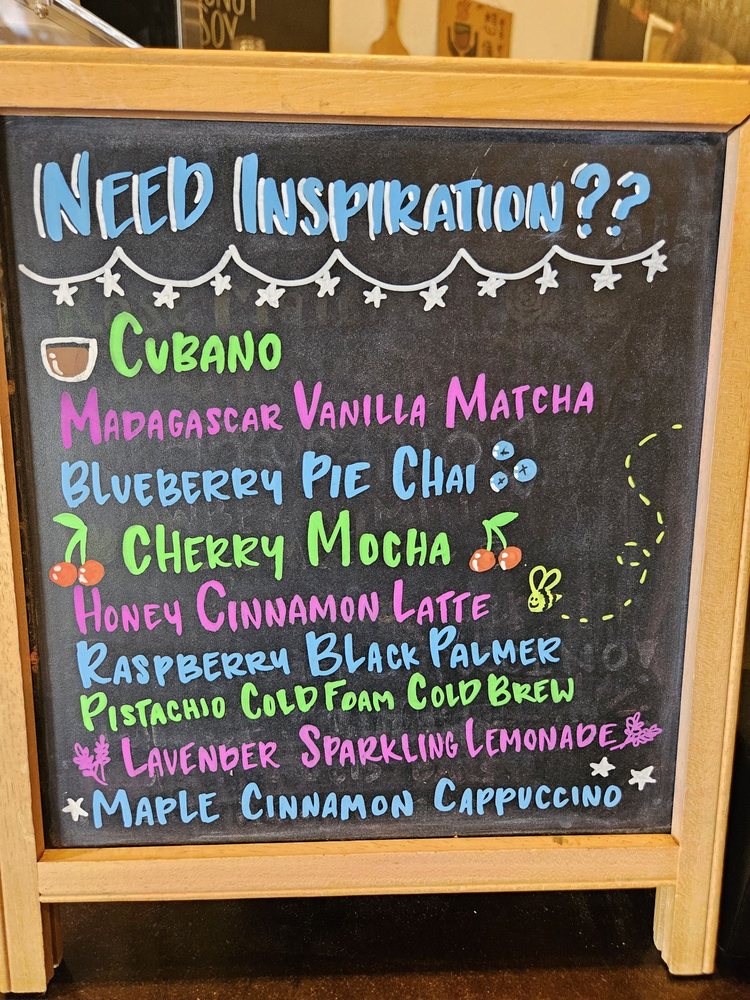 NUT
SOY
NEED INSPIRATION??
CUBANO
MADAGASCAR VANILLA MATCHA
BLUEBERRY PIE CHAI
CHERRY MOCHA
HONEY CINNAMON LATTE
RASPBERRY BLACK PALMER
PISTACHIO COLD FOAM COLD BREW
LAVENDER SPARKLING LEMONADE
MAPLE CINNAMON CAPPUCCINO